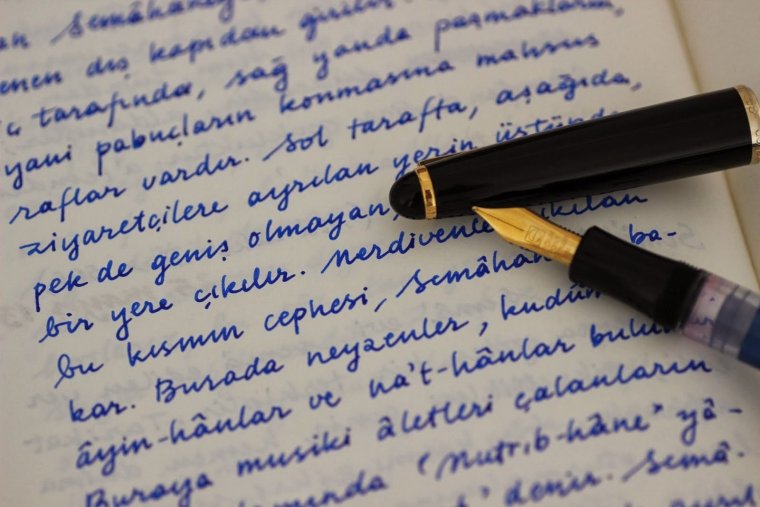 an Semâhane
enen dış kapıdan girilir
iç tarafında, sağ yanda paşmakların,
yani pabuçların konmasına mahsus
raflar vardır. Sol tarafta, aşağıda,
ziyaretçilere ayrılan yerin üstünde,
pek de geniş olmayan,
bir yere çıkılır. Merdivenle çıkılan
bu kısmın cephesi, Semâhan ba-
kar. Burada neyzenler, kudüm
âyin-hânlar ve na't-hânlar bulun
Buraya musiki âletleri çalanların
"Mutrıb-hâne" yâ-
denir. Semâ-